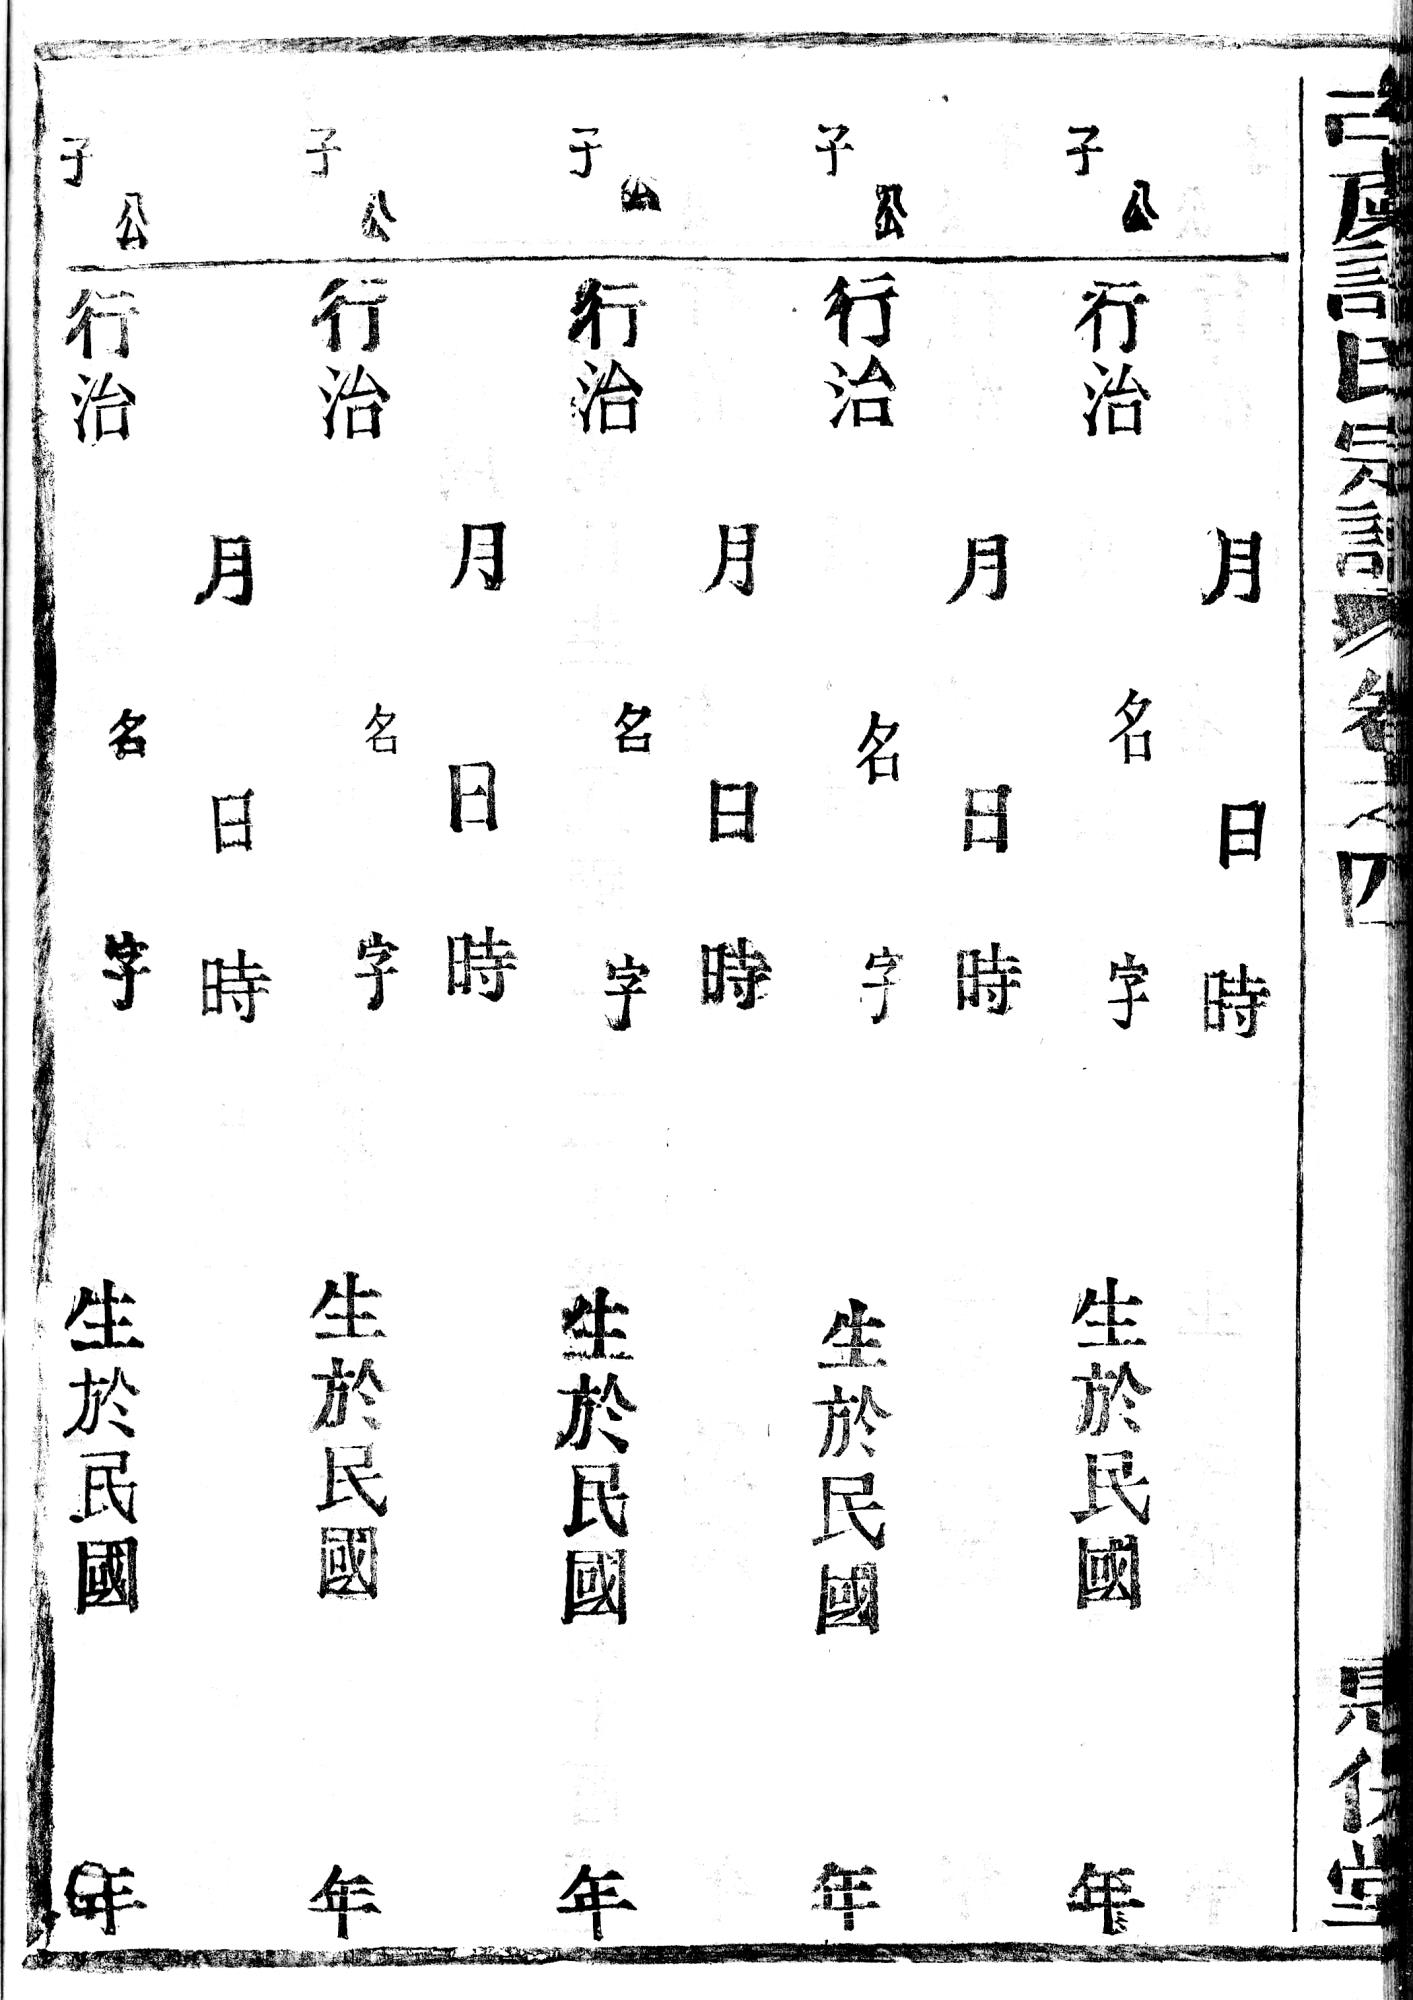 氏宗譜 卷之四
堂
月日時
公
子
行治名字生於民國年
月日時
公
子
行治名字生於民國年
月日時
公
子
行治名字生於民國年
月日時
公
子
行治名字生於民國年
月日時
公
子
行治名字生於民國年